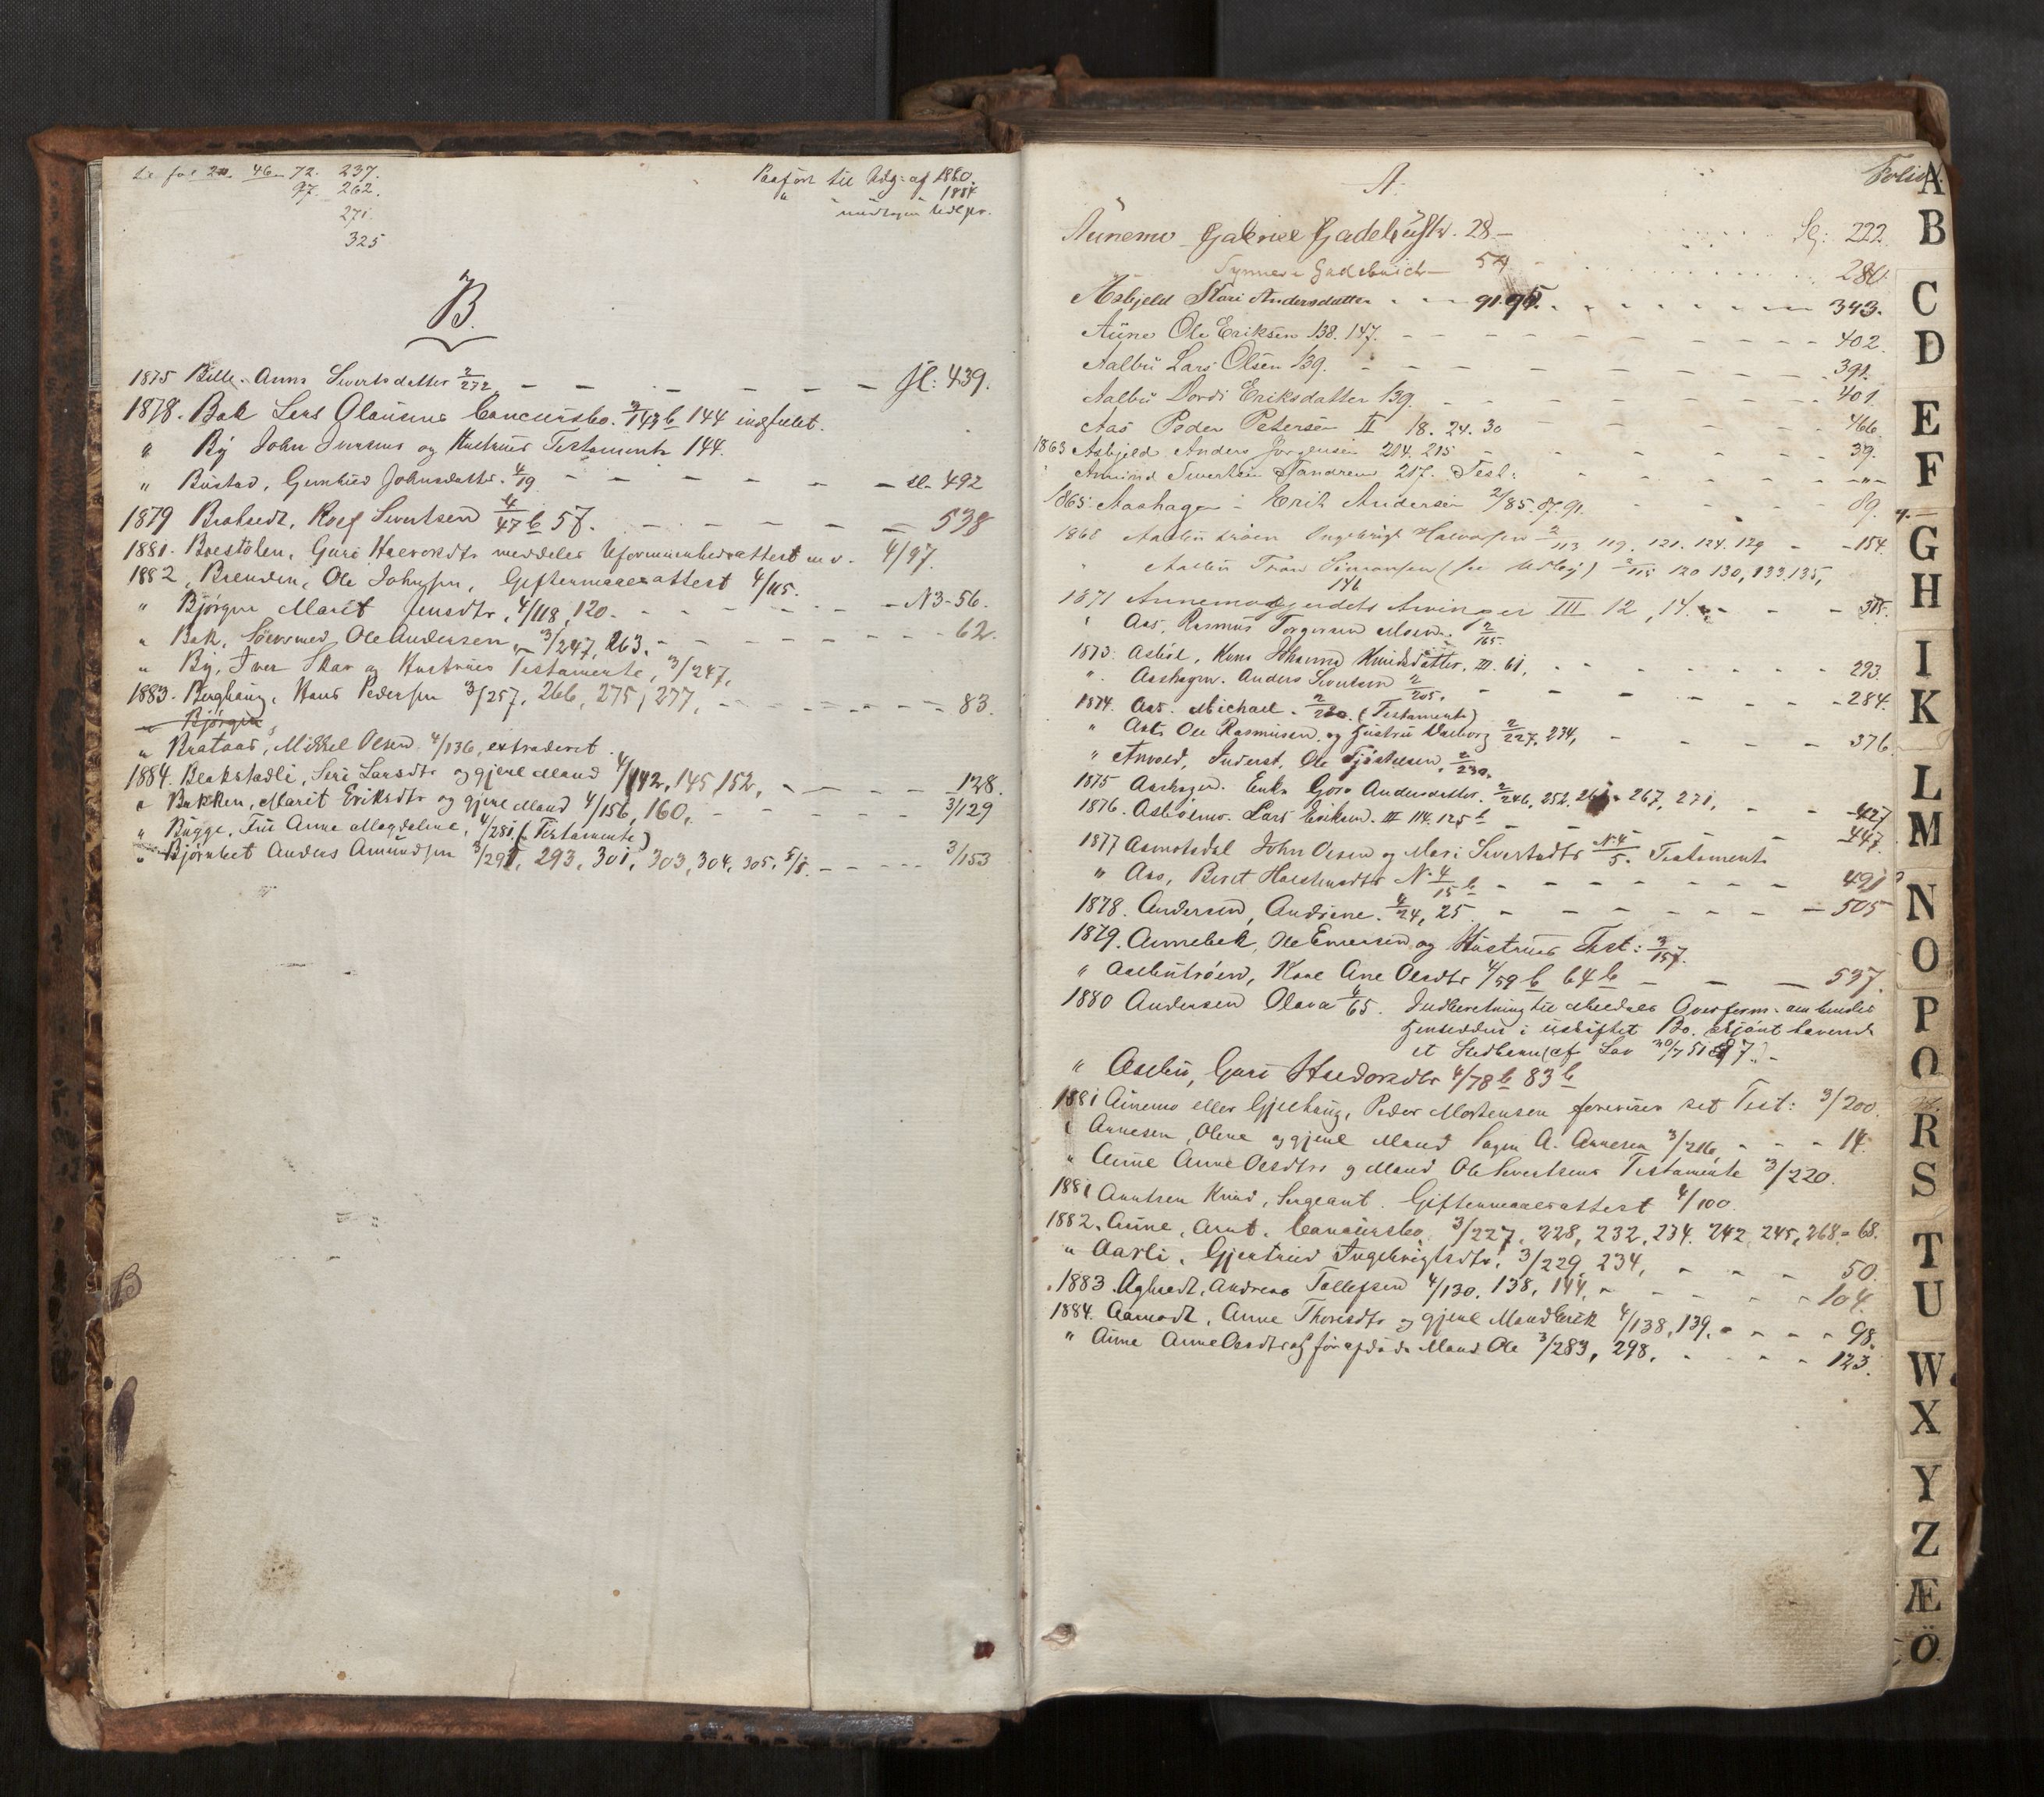 Se fol 20. 46. 72. 237.
97. 262.
271.
325
Paaført til Udg: af 1880.
" 1884
B.
1875 Bille. Anne Sivertsdatter 2/272 – – – – – – – fl: 439.
1878. Bak Lars Olausens Concursbo. 3/143 b 144 indsluttet.
" By John Jensens og Hustrues Testamente 144.
" Bustad, Gunhild Johnsdatter. 4/19 – – – – – – – 492
1879 Bratsedt, Roef Sivertsen 4/47 b 57. – – – – – 538
1881. Boestølen, Guri Halvorsdtr meddeles Uformuenhedsattest m. v. 4/97.
1882 Brenden, Ole Johnsen, Giftermaalsattest 4/115.
" Bjørgen Marit Jensdtr, 4/118, 120. – – – – – N3-56.
" Bak, Sørensmed, Ole Andersen, 3/247, 263. – – – – – 62.
" By, Iver Skar og Hustrues Testamente, 3/247,
1883. Berghaug, Hans Pedersen 3/257, 266, 275, 277, – – – – – 83.
" Bjørgen
" Brataas, Mikkel Olsen 4/136, extraderet.
1884. Blakstadli, Siri Larsdtr og gjenl Mand 4/142, 145, 152, – – – – 128.
" Bakken, Marit Eriksdtr og gjenl Mand 4/156, 160, – – – – – 3/129
" Bugge, Fru Anne Magdalene, 4/281 (Testamente)
" Bjørnbet Anders Amundsen 3/291, 293, 301, 303, 304, 305, 5/1. – – – – 3/153
B
A.
Folio.
Aunemo Gabriel Gadebusch. 28 – Sg: 222.
Synneve Gadebusch – 54 280.
Asbjeld Kari Andersdatter – – 91. 95. 343.
Aune Ole Eriksen 138. 147. – – – – – – – 402.
Aalbu Lars Olsen 139. – – – – – – – 391.
Aalbu Dordi Eriksdatter 139. – – – – – – – 401.
Aas Peder Petersen II 18. 24. 30 – – – – 466.
1863 Asbjeld Anders Jørgensen 214. 215 – – – – 39.
" Amund Sivertsen Tandrem 217. Test: – " –
1865. Aashagen – Erik Andersen 2/85. 87. 91. – – – – 89.
1868 Aalbutrøen Ingebrigt Halvorsen 2/113 119. 121. 124. 129 – – 154.
" Aalbu Tron Simonsen (se Udby) 2/115 120 130, 133. 135,
146
1871 Aunemogjerdets Arvinger III 12, 14. – – – 315.
" Aas, Rasmus Torgersen Moen. 2/165.
1873. Asbøl, Hans Johannes Knudsdatter, III. 61, – – – – – 293.
" Aashagen. Anders Sivertsen 2/205. – – – – – – 284.
1874. Aas. Michael. 2/230. (Testamente)
" Aas, Ole Rasmusen og Hustru Valborg 2/227, 234, – – – – – 376.
" Arvold, Inderst. Ole Tjøstelsen, 2/230.
1875 Aashagen. Enke Goro Andersdatter. 2/246, 252, 261, 267, 271, – – 427
1876. Asbølmo. Lars Eriksen. III 114. 125 b – – – – – 447.
1877 Aamotsdal John Olsen og Mari Sivertsdtr N. 4/5. Testament
" Aas, Beret Halstensdtr N. 4/15 b – – – – – – – 491
1878. Andersen, Andrine. 4/24, 25 – – – – – – – 505
1879. Aunebek, Ole Enersen og Hustrues Test: 3/157.
" Aalbutrøen, Kare Ane Olsdtr 4/59 b 64 b – – – 537.
1880 Andersen Olava 4/65. Indberetning til Meldals Overform. om hendes
Henseddren i uskiftet Bo. skjønt havende
et Stedbarn (cf Lov 30/7 51 § 7.) –
" Aalbu, Guri Halvorsdtr 4/78 b 83 b
1881 Aunemo eller Gjelhaug, Peder Mortensen foreviser sit Test: 3/200.
" Arnesen, Olene og gjenl Mand Lagm A. Arnesen 3/216, – – – 14.
" Aune Anne Olsdtr og Mand Ole Sivertsens Testamente 3/220.
1881 Arntsen Knud, Sergeant. Giftermaalsattest 4/100.
1882. Aune, Arnt. Concursbo. 3/227, 228, 232, 234. 242 245, 268. = 68.
" Aarli, Gjertrud Ingebrigtsdtr, 3/229, 234, – – – – 50.
1883 Aghsedt, Andreas Tollefsen 4/130. 138, 144, – – – – – 104.
1884. Aamodt, Anne Thoresdtr og gjenl Mand Erik 4/138, 139. – – – – 98.
" Aune Anne Olsdtr og før afdøde Mand Ole 3/283, 298, – – – – 123.
A
B
C
D
E
F
G
H
I
K
L
M
N
O
P
Q
R
S
T
U
W
X
Y
Z
Æ
Ö.